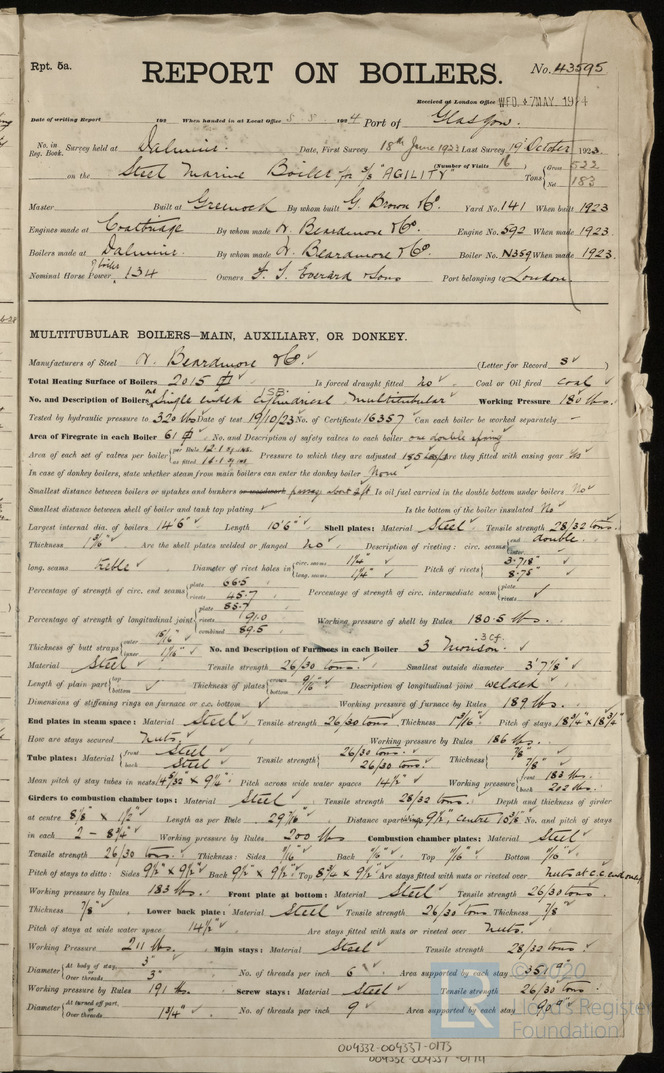 Rpt. 5a.
REPORT ON BOILERS.
No. 43595
Received at London Office WED. 7 MAY. 1924
Date of writing Report 192 When handed in at Local Office 5. 5. 1924 Port of Glasgow.
No. in Reg. Book. Survey held at Dalmuir. Date, First Survey 18th June 1923 Last Survey 19 October 1923
(Number of Visits 16)
on the Steel Marine Boiler for S/S "AGILITY" Tons { Gross 522 Net 183
Master Built at Greenock By whom built G. Brown & Co. Yard No. 141 When built 1923
Engines made at Coatbridge By whom made W. Beardmore & Co. Engine No. 592 When made 1923.
Boilers made at Dalmuir. By whom made W. Beardmore & Co. Boiler No. N359 When made 1923.
Nominal Horse Power 134 Owners F. T. Everard & Sons Port belonging to London.
MULTITUBULAR BOILERS—MAIN, AUXILIARY, OR DONKEY.
Manufacturers of Steel W. Beardmore & Co. (Letter for Record S )
Total Heating Surface of Boilers 2015 Is forced draught fitted No Coal or Oil fired coal
No. and Description of Boilers Single ended Cylindrical multitubular 1SB. Working Pressure 180 lbs.
Tested by hydraulic pressure to 320 lbs Date of test 19/10/23 No. of Certificate 16357 Can each boiler be worked separately —
Area of Firegrate in each Boiler 61 No. and Description of safety valves to each boiler one double spring
Area of each set of valves per boiler { per Rule as fitted Pressure to which they are adjusted 185 lbs Are they fitted with easing gear Yes
In case of donkey boilers, state whether steam from main boilers can enter the donkey boiler None
Smallest distance between boilers or uptakes and bunkers or woodwork Is oil fuel carried in the double bottom under boilers No
Smallest distance between shell of boiler and tank top plating Is the bottom of the boiler insulated No
Largest internal dia. of boilers 14'6" Length 10'6" Shell plates: Material Steel Tensile strength 28/32 tons.
Thickness 1 3/16" Are the shell plates welded or flanged No Description of riveting: circ. seams { end double.
long. seams treble Diameter of rivet holes in { circ. seams 1 1/4" long. seams 1 1/4" Pitch of rivets { 3.718" 8.75"
Percentage of strength of circ. end seams { plate 66.5 rivets 45.7 Percentage of strength of circ. intermediate seam { plate rivets
Percentage of strength of longitudinal joint { plate 85.7 rivets 91.0 combined 89.5 Working pressure of shell by Rules 180.5 lbs.
Thickness of butt straps { outer 15/16" inner 1 1/16" No. and Description of Furnaces in each Boiler 3 Morison. 3 Cf.
Material Steel Tensile strength 26/30 tons. Smallest outside diameter 3'7 1/8"
Length of plain part { top bottom Thickness of plates { crown bottom 9/16" Description of longitudinal joint welded
Dimensions of stiffening rings on furnace or c.c. bottom Working pressure of furnace by Rules 189 lbs.
End plates in steam space: Material Steel Tensile strength 26/30 tons Thickness 1 3/16" Pitch of stays 18 3/4" x 18 3/4"
How are stays secured Nuts Working pressure by Rules 186 lbs.
Tube plates: Material { front Steel back Steel Tensile strength { 26/30 tons. 26/30 tons. Thickness { 7/8" 7/8"
Mean pitch of stay tubes in nests Pitch across wide water spaces 14 1/2" Working pressure { front 183 lbs. back 202 lbs.
Girders to combustion chamber tops: Material Steel Tensile strength 28/32 tons. Depth and thickness of girder
at centre 8 5/8" x 1 1/2" Length as per Rule 29 7/16" Distance apart No. and pitch of stays
in each 2 - 8 3/4" Working pressure by Rules 200 lbs Combustion chamber plates: Material Steel
Tensile strength 26/30 tons. Thickness: Sides 11/16" Back Top 11/16" Bottom 11/16"
Pitch of stays to ditto: Sides 9 1/2" x 9 1/2" Back 9 1/2" x 9 1/2" Top 8 3/4" x 9 1/2" Are stays fitted with nuts or riveted over Nuts at c.c. end only
Working pressure by Rules 183 lbs. Front plate at bottom: Material Steel Tensile strength 26/30 tons
Thickness 7/8" Lower back plate: Material Steel Tensile strength 26/30 tons Thickness 7/8"
Pitch of stays at wide water space 14 1/2" Are stays fitted with nuts or riveted over Nuts.
Working Pressure 211 lbs. Main stays: Material Steel Tensile strength 28/32 tons
Diameter { At body of stay, 3" Over threads 3" No. of threads per inch 6 Area supported by each stay 351
Working pressure by Rules 191 lbs. Screw stays: Material Steel Tensile strength 26/30 tons
Diameter { At turned off part, or Over threads 1 3/4" No. of threads per inch 9 Area supported by each stay 90
© 2020
LR
Lloyd's Register
Foundation
004332-004337-0173